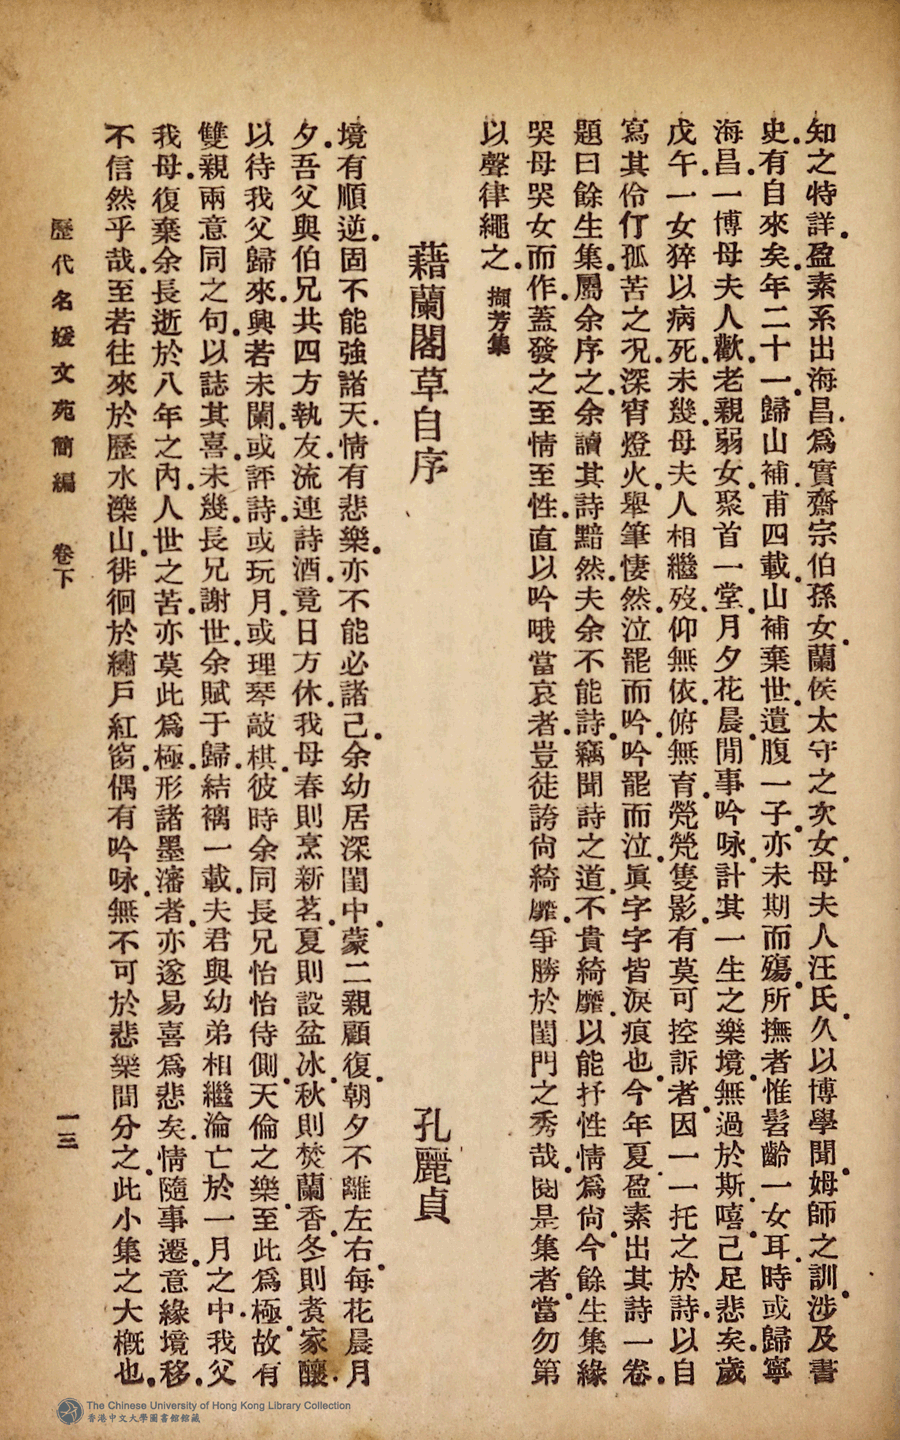 知之特詳。盈素系出海昌。爲實齋宗伯孫女。蘭侯太守之次女。母夫人汪氏。久以博學聞。姆師之訓。涉及書
史。有自來矣。年二十一。歸山補甫四載。山補棄世。遺腹一子。亦未期而殤。所撫者惟髫齡一女耳。時或歸寧
海昌。一博母夫人歡。老親弱女。聚首一堂。月夕花晨。閒事吟咏。計其一生之樂境。無過於斯。嘻。已足悲矣。歲
戊午。一女猝以病死。未幾母夫人相繼歿。仰無依。俯無育。煢煢隻影。有莫可控訴者。因一一托之於詩。以自
寫其伶仃孤苦之況。深宵燈火。舉筆悽然。泣罷而吟。吟罷而泣。眞字字皆淚痕也。今年夏。盈素出其詩一卷。
題曰餘生集。屬余序之。余讀其詩黯然。夫余不能詩。竊聞詩之道。不貴綺靡。以能抒性情爲尙。今餘生集緣
哭母哭女而作。蓋發之至情至性。直以吟哦當哀者。豈徒誇尙綺靡。爭勝於閨門之秀哉。閱是集者。當勿第
以聲律繩之。擷芳集
藉蘭閣草自序 孔麗貞
境有順逆。固不能強諸天。情有悲樂。亦不能必諸己。余幼居深閨中。蒙二親顧復。朝夕不離左右。每花晨月
夕。吾父與伯兄共四方執友。流連詩酒。竟日方休。我母春則烹新茗。夏則設盆冰。秋則焚蘭香。冬則煮家釀。
以待我父歸來。興若未闌。或評詩。或玩月。或理琴敲棋。彼時余同長兄怡怡侍側。天倫之樂。至此爲極。故有
雙親兩意同之句。以誌其喜。未幾。長兄謝世。余賦于歸。結褵一載。夫君與幼弟相繼淪亡於一月之中。我父
我母。復棄余長逝於八年之內。人世之苦。亦莫此爲極。形諸墨瀋者。亦遂易喜爲悲矣。情隨事遷。意緣境移。
不信然乎哉。至若往來於歷水濼山。徘徊於繡戶紅窗。偶有吟咏。無不可於悲樂間分之。此小集之大槪也。
歷代名媛文苑簡編 卷下 一三
The Chinese University of Hong Kong Library Collection
香港中文大學圖書館館藏